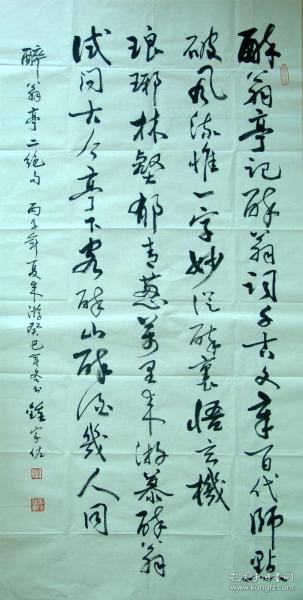 醉翁亭记醉翁词千古文章百代师点
破风流惟一字妙从醉里悟玄机
琅琊林壑郁青葱万里来游慕醉翁
试问古今亭下客醉山醉酒几人同
醉翁亭二绝句 丙子年夏来游癸巳年冬书 钟家佐